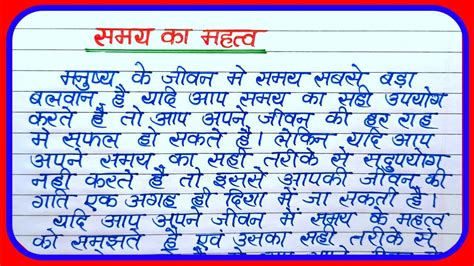 समय का महत्व
मनुष्य के जीवन मे समय सबसे बड़ा
बलवान है यदि आप समय का सही उपयोग
करते है तो आप अपने जीवन की हर राह
मे सफल हो सकते है। लेकिन यदि आप
अपने समय का सही तरीके से सदुपयोग
नही करते है तो इससे आपकी जीवन की
गति एक अगह ही दिशा में जा सकती है।
यदि आप अपने जीवन में समय के महत्व
को समझते है एवं उसका सही तरीके से